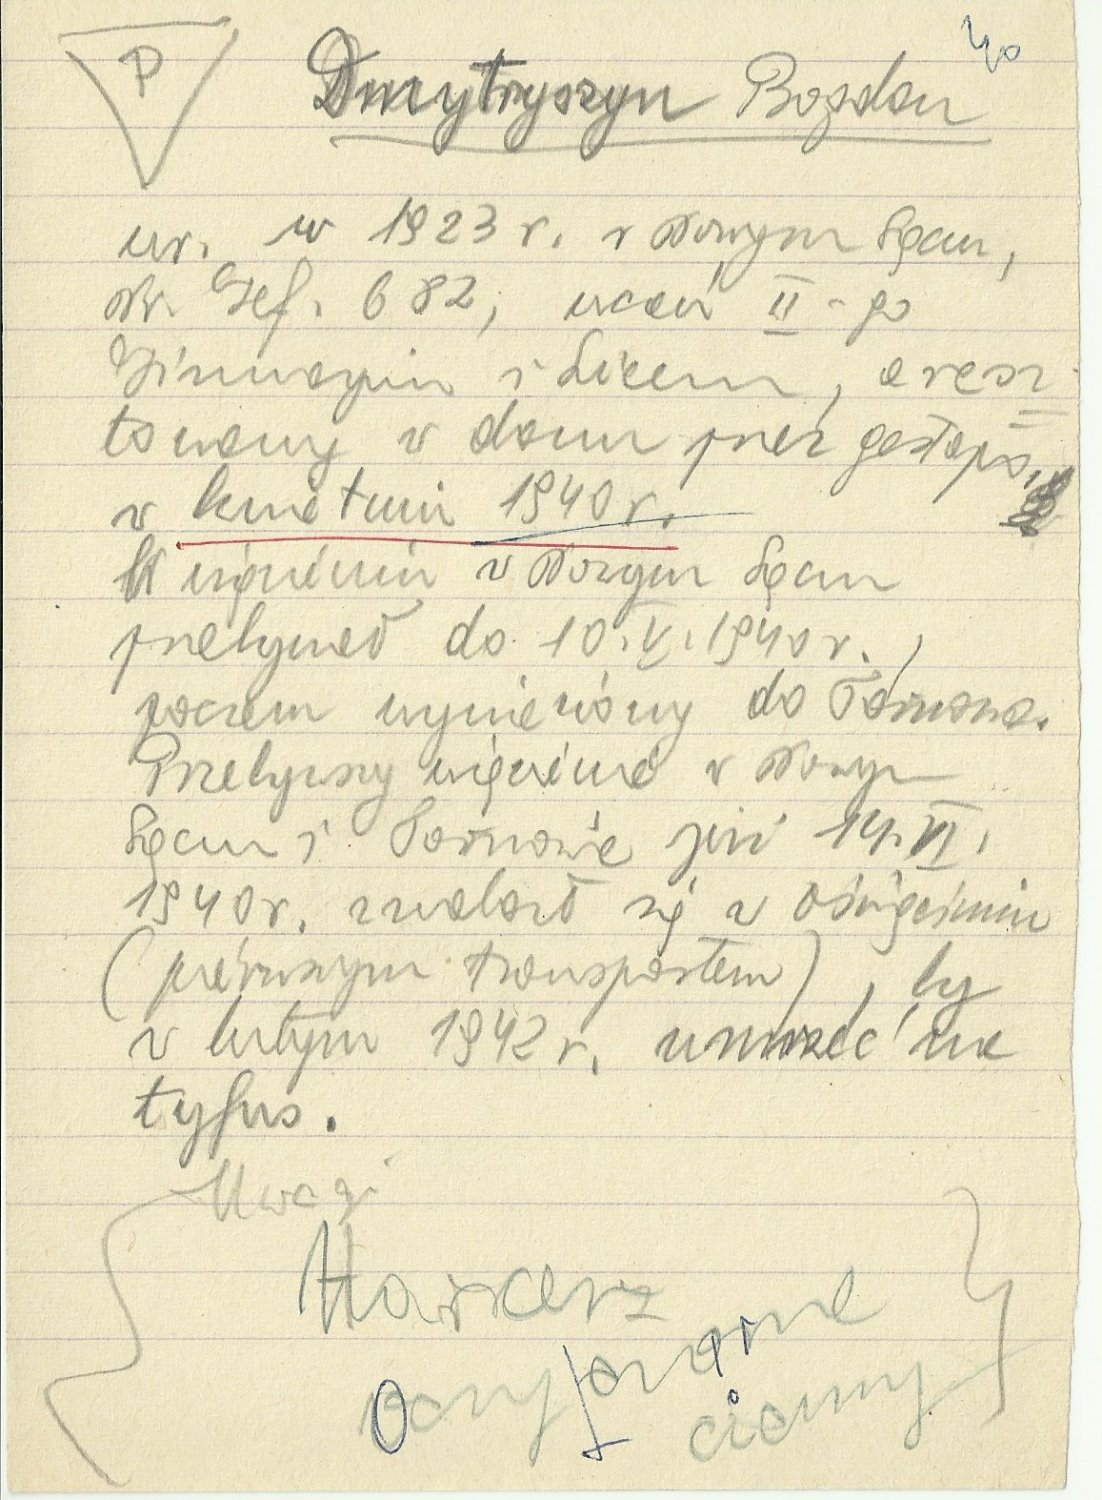 P
40
Dmytryszyn Bogdan
ur. w 1923 r. w Nowym Sączu,
Nr. Gef. 682, uczeń II-go
Gimnazjum i Liceum, aresz-
towany w domu przez gestapo,
w kwietniu 1940 r.
W więzieniu w Nowym Sączu
przebywał do 10.V.1940 r.,
poczem wywieziony do Tarnowa.
Przebywszy więzienie w Nowym
Sączu i Tarnowie już 14.VI.
1940 r. znalazł się w Oświęcimiu
(pierwszym transportem), by
w lutym 1942 r. umrzeć na
tyfus.
Uwagi
Harcerz
Oczy
ciemny